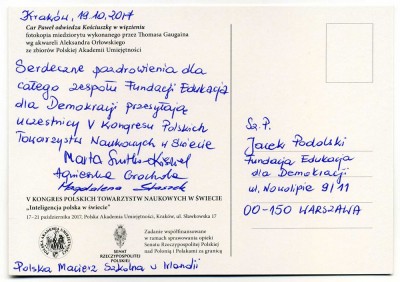 Kraków, 19.10.2017
Car Paweł odwiedza Kościuszkę w więzieniu
fotokopia miedziorytu wykonanego przez Thomasa Gaugaina
wg akwareli Aleksandra Orłowskiego
ze zbiorów Polskiej Akademii Umiejętności
Serdeczne pozdrowienia dla
całego zespołu Fundacji Edukacja
dla Demokracji przesyłają
uczestnicy V Kongresu Polskich
Towarzystw Naukowych w Świecie
Marta
Agnieszka Grochola
Magdalena
V KONGRES POLSKICH TOWARZYSTW NAUKOWYCH W ŚWIECIE
„Inteligencja polska w świecie”
17–21 października 2017, Polska Akademia Umiejętności, Kraków, ul. Sławkowska 17
SENAT
RZECZYPOSPOLITEJ
POLSKIEJ
Zadanie współfinansowane
w ramach sprawowania opieki
Senatu Rzeczypospolitej Polskiej
nad Polonią i Polakami za granicą
Polska Macierz Szkolna w Irlandii
Sz. P.
Jacek Podolski
Fundacja Edukacja
dla Demokracji
ul. Nowolipie 9/11
00-150 WARSZAWA